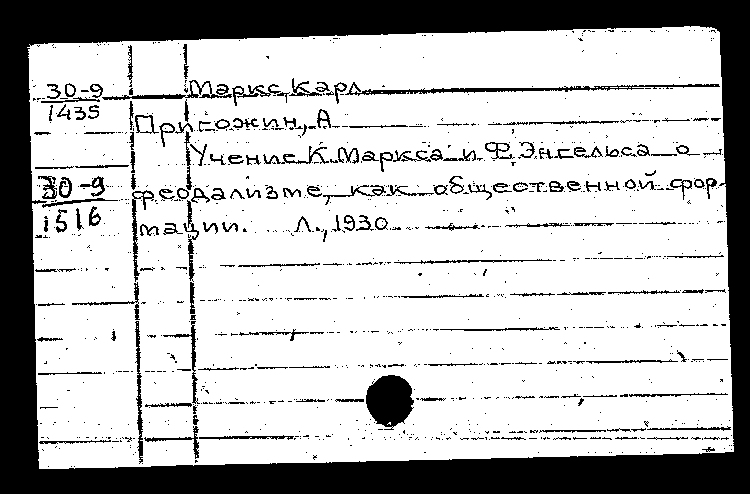 30-9
1435
Маркс, Карл
Пригожин, А
Учение К. Маркса и Ф. Энгельса о
30-9
1516
феодализме, как общественной фор-
мации. Л., 1930